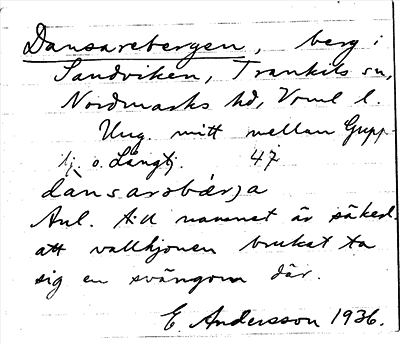 Dansarebergen, berg i
Sandviken, Trankils sn,
Nordmarks hd, Vrml l.
Ung. mitt mellan Gupp-
tj. o. Långtj. 47
dansarobærja
Anl. till namnet är säkerl.
att vallhjonen brukat ta
sig en svängom där.
E. Andersson 1936.